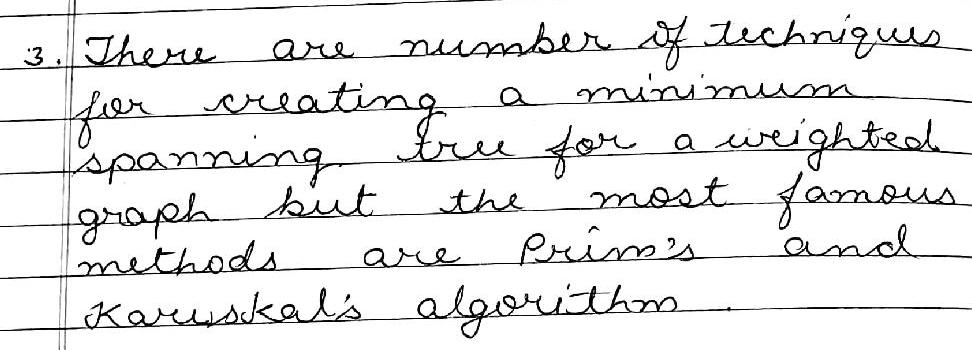 3. There are number of techniques
for creating a minimum
spanning tree for a weighted
graph but the most famous
methods are Prim's and
Karuskal's algorithm.